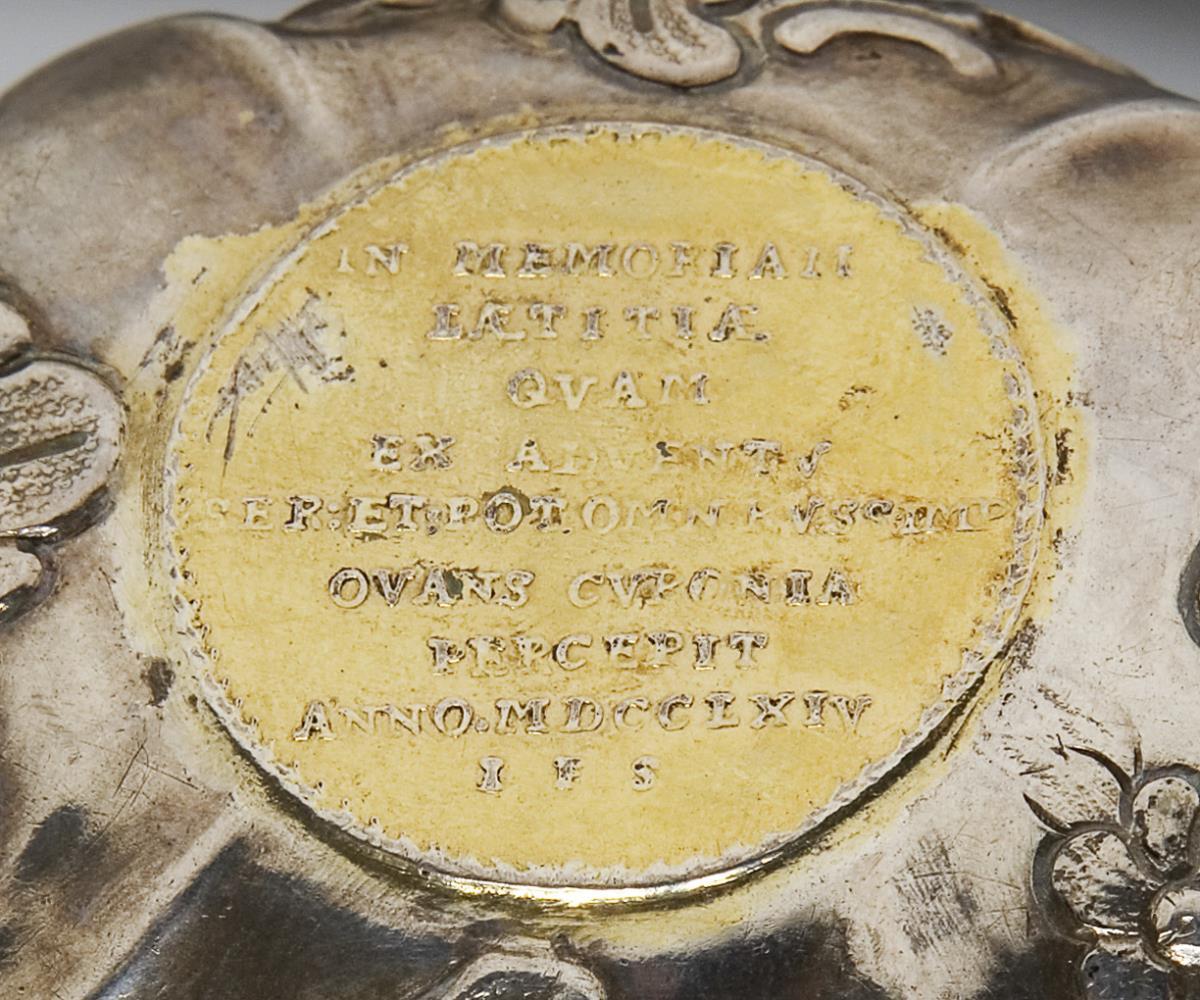 IN MEMORIAM
LÆTITIÆ
QVAM
EX ADVENTV
SER: ET. POT. OMN RVSS IMP
OVANS CVRONIA
PERCEPIT
ANNO. MDCCLXIV
I F S